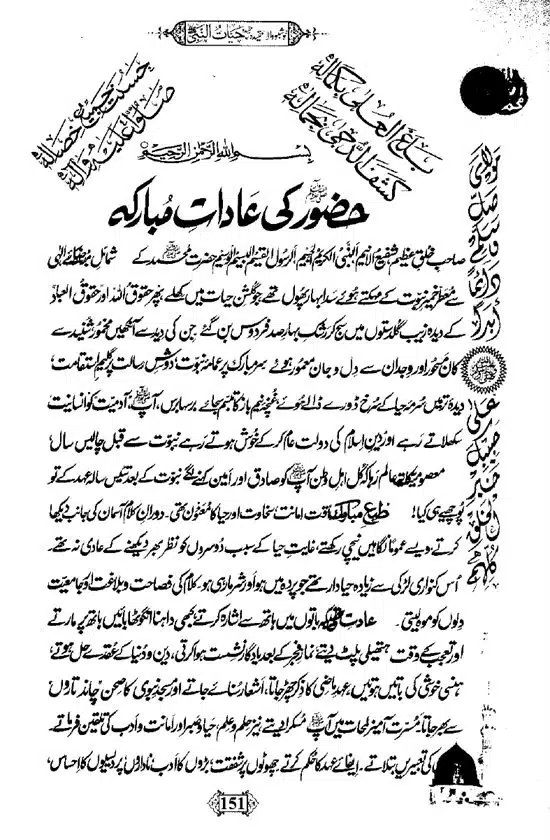 حیات النبی ﷺ
بلغ العلیٰ بکمالہٖ
کشف الدجیٰ بجمالہٖ
حسنت جمیع خصالہٖ
صلوا علیہ وآلہٖ
بسم اللہ الرحمٰن الرحیم
حضور ﷺ کی عاداتِ مبارکہ
صاحبِ خلقِ عظیم شفیع الامیم النبی الکریم الرسول القسیم الجسیم الوسیم حضرت محمد ﷺ کے شمائل
سے معطر نبوت کے مہکتے ہوئے سدا بہار پھول تھے جو گلشنِ حیات میں کھلے پھر حقوق اللہ اور حقوق العباد
کے دیدہ زیب گلدستوں میں سج کر رشکِ بہارِ صد فردوس بن گئے جن کی دید سے آنکھیں مخمور شنید سے
کان مسحور اور وجدان سے دل و جان معمور ہوئے سر مبارک پر عمامۂ نبوت، دوشِ رسالت پر گلیمِ استقامت،
دیدۂ تر میں سرمۂ حیا کے سرخ ڈورے ڈالے ہوئے غنچۂ دہن نیم باز کا تبسم سجائے برسہا برس، آپ ﷺ، آدمیت کو انسانیت
سکھلاتے رہے اور دینِ اسلام کی دولت عام کر کے خوش ہوتے رہے نبوت سے قبل چالیس سال،
معصومیت کا عالم رہا کہ کل اہلِ وطن آپ ﷺ کو صادق اور امین کہنے لگے نبوت کے بعد تیس سالہ عہد کے تو
پوچھیے ہی کیا! طبع مبارک صداقت امانت، سخاوت اور حیا کا معجون تھی۔ دورانِ کلام آسمان کی جانب دیکھا
کرتے، ویسے عموماً نگاہیں نیچی رکھتے، غایتِ حیا کے سبب دوسروں کو نظر بھر دیکھنے کے عادی نہ تھے۔
اُس کنواری لڑکی سے زیادہ حیادار تھے جو پردہ میں ہو اور شرما رہی ہو۔ کلام کی فصاحت و بلاغت اور جامعیت
دلوں کو موہ لیتی۔ عادت تھی کہ باتوں میں ہاتھ سے اشارہ کرتے، کبھی داہنا انگوٹھا بائیں ہاتھ پر مارتے
اور تعجب کے وقت ہتھیلی پلٹ دیتے، نمازِ فجر کے بعد یادگار نشست ہوا کرتی، دین و دنیا کے عقدے حل ہوتے،
ہنسی خوشی کی باتیں ہوتیں، عہدِ ماضی کا ذکر چھڑ جاتا، اشعار سنائے جاتے اور مسجدِ نبوی کا صحن چاند تاروں
سے بھر جاتا۔ مسرت آمیز لمحات میں آپ ﷺ مسکرا دیتے نیز حلم و علم، حیا و صبر اور امانت و ادب کی تلقین فرماتے۔
کی تعبیریں بتلاتے۔ ایفائے عہد کا حکم کرتے چھوٹوں پر شفقت، بڑوں کا ادب ناداروں پردیسیوں کا احساس،
مولای صل وسلم دائماً ابداً
علی حبیبک خیر الخلق کلهم
151